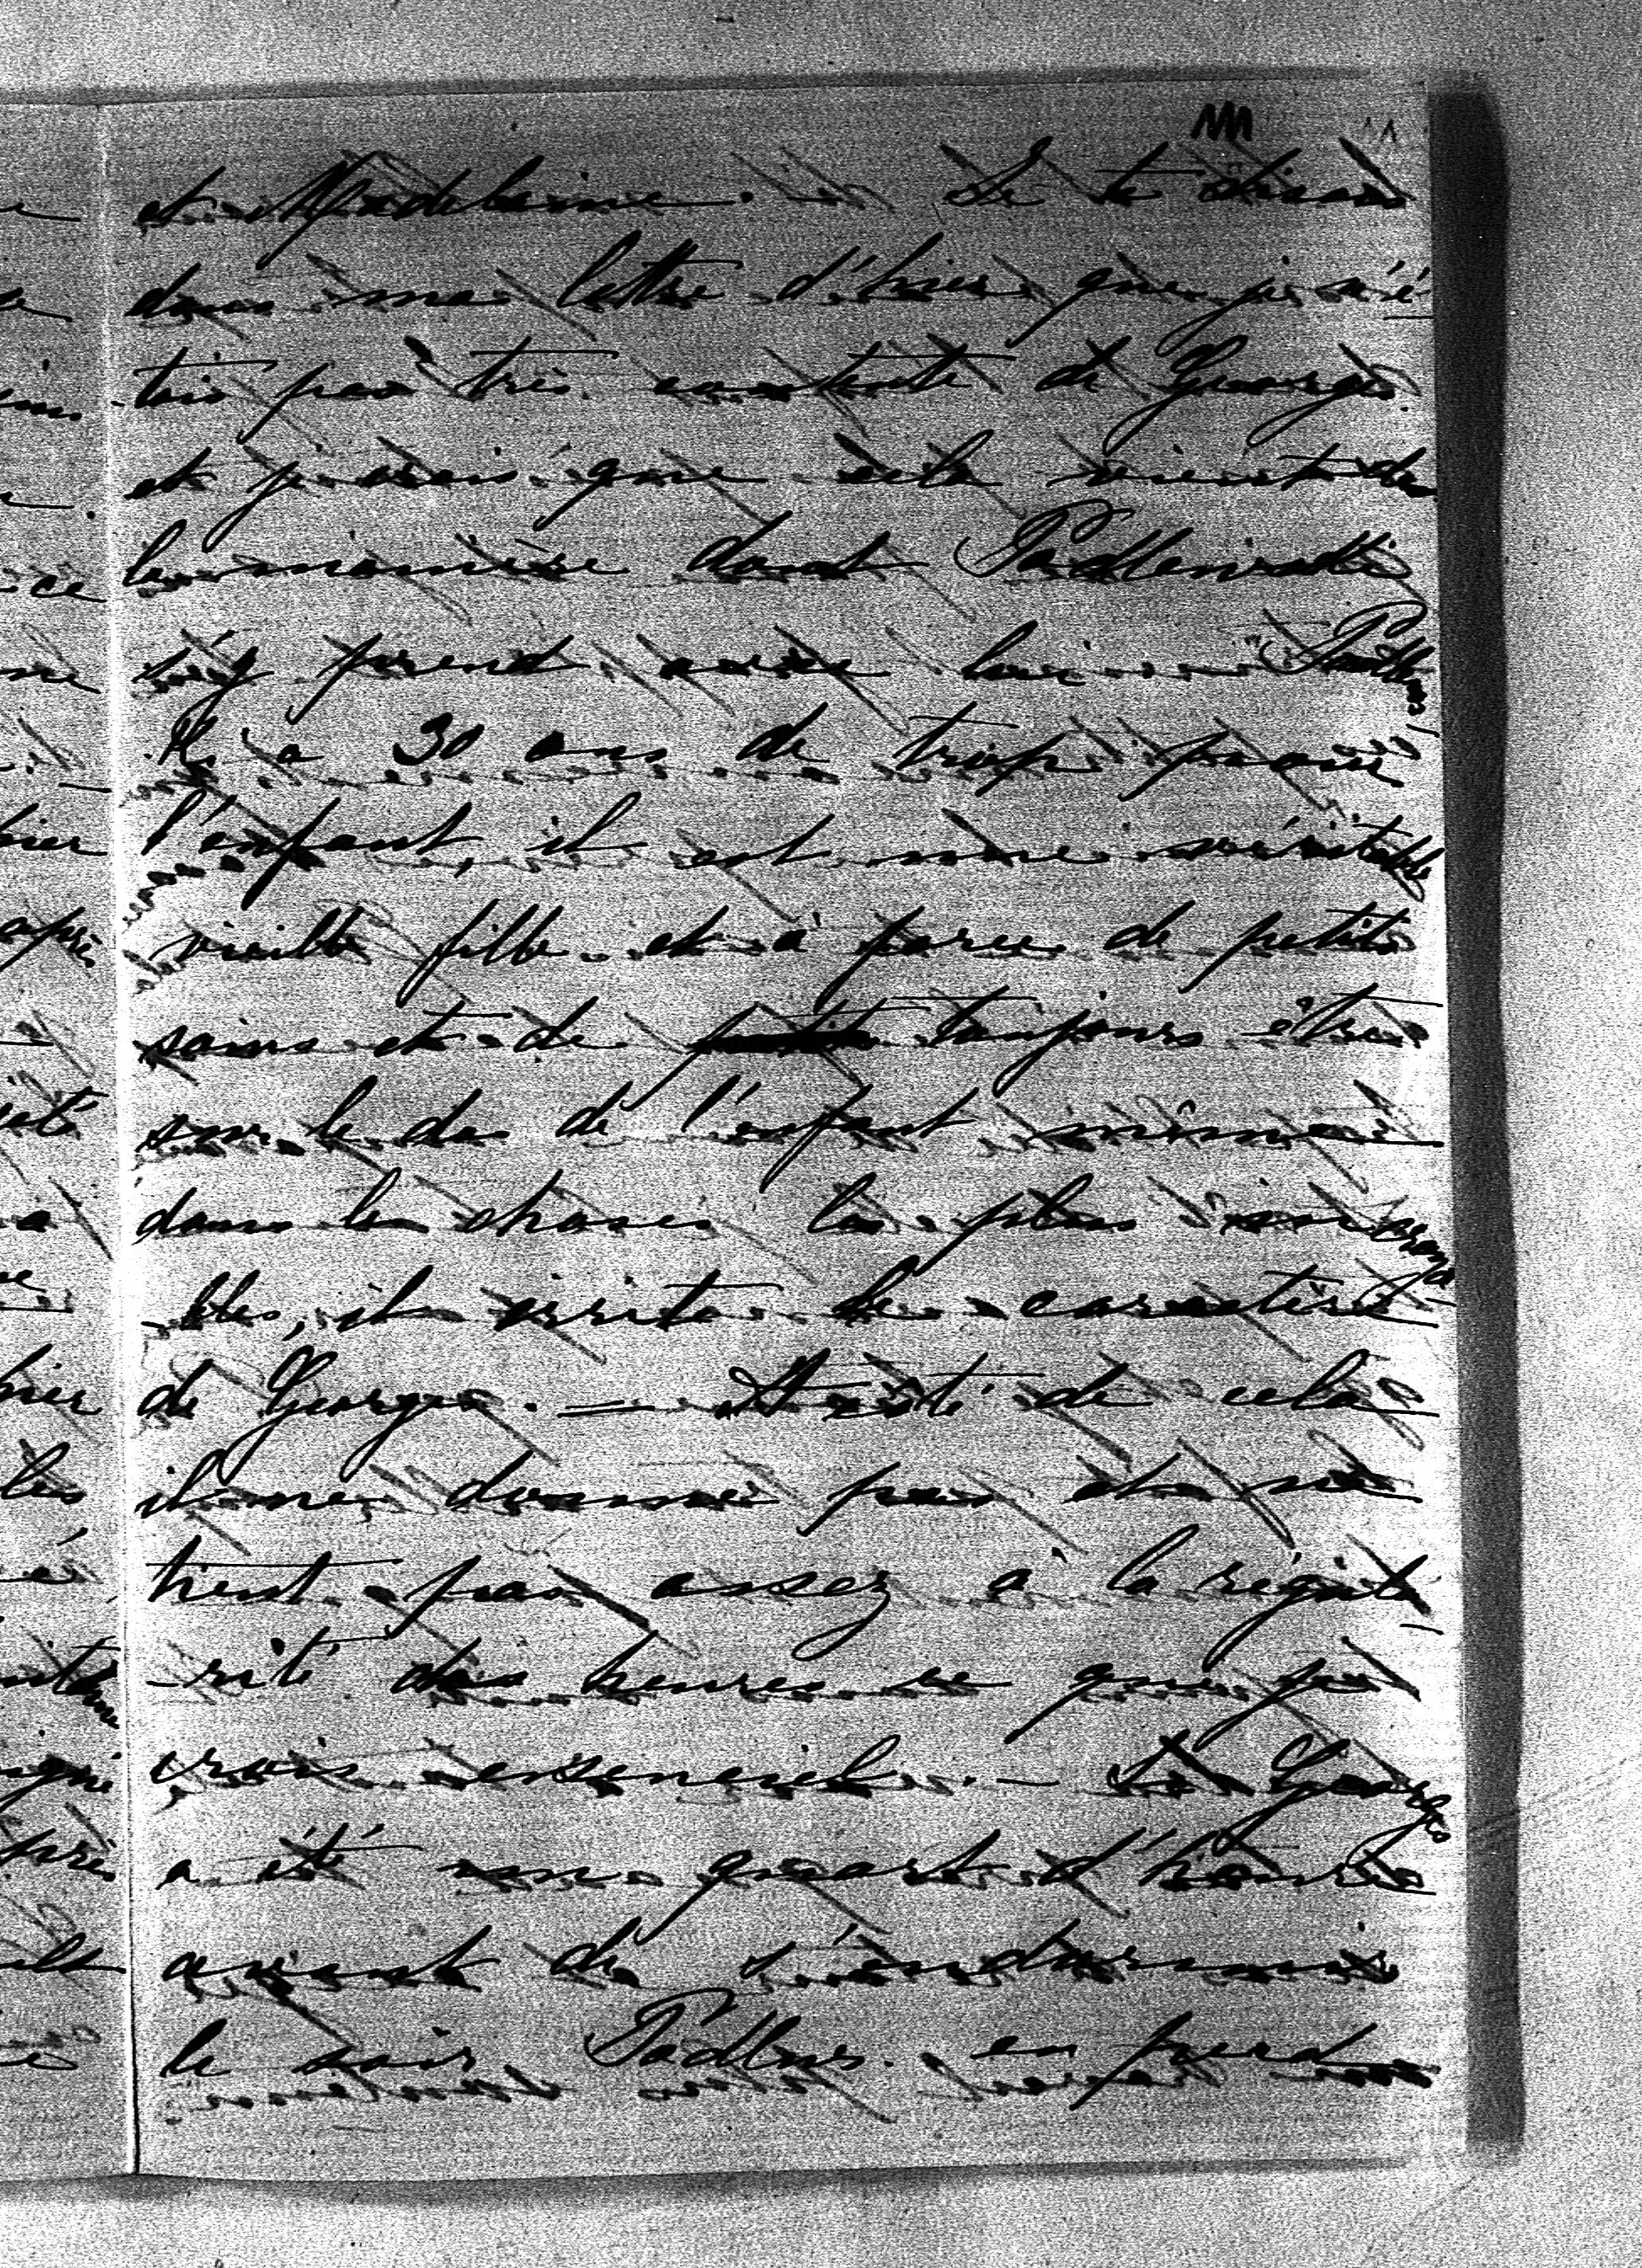 et Madeleine. — Je te disais
dans ma lettre d'hier que je n'é
tais pas très contente de Georges
et je crois que cela vient de
la manière dont Padlewski
s'y prend avec lui — Padlews
ki a 30 ans de trop pour
l'enfant, il est une véritable
vieille fille et à force de petits
soins et de toujours être
sur le dos de l'enfant même
dans les choses les plus insignifia
bles, il irrite le caractère
de Georges. — A côté de cela
il ne donne pas et ne
tient pas assez à la régula
rité des heures ce que je
crois essentiel. — Si Georges
a été un quart d'heure
avant de s'endormir
le soir Padlews. en prend